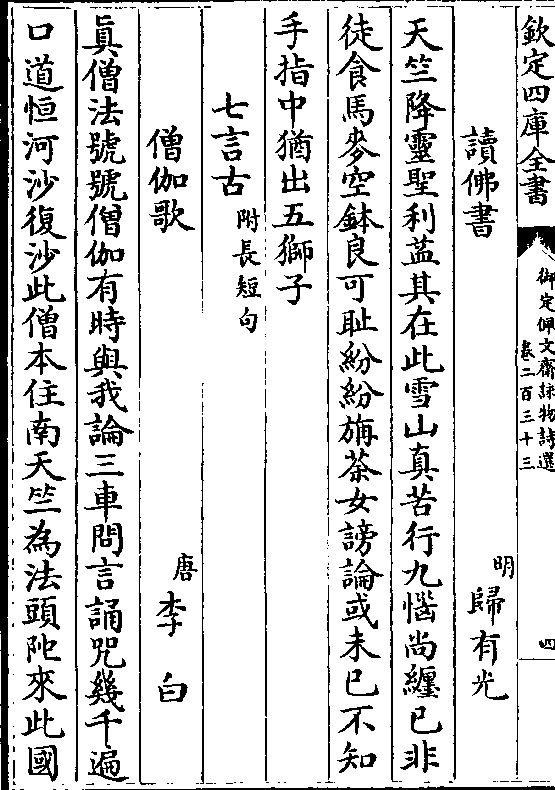 欽定四庫全書
御定佩文齋詠物詩選
卷二百三十三
四
讀佛書
明 歸有光
天竺降靈聖利益其在此雪山真苦行九惱尚纏已非
徒食馬麥空鉢良可恥紛紛旃荼女謗論或未已不知
手指中猶出五獅子
七言古 附長短句
僧伽歌
唐 李白
真僧法號號僧伽有時與我論三車問言誦咒幾千遍
口道恒河沙復沙此僧本住南天竺為法頭陀來此國